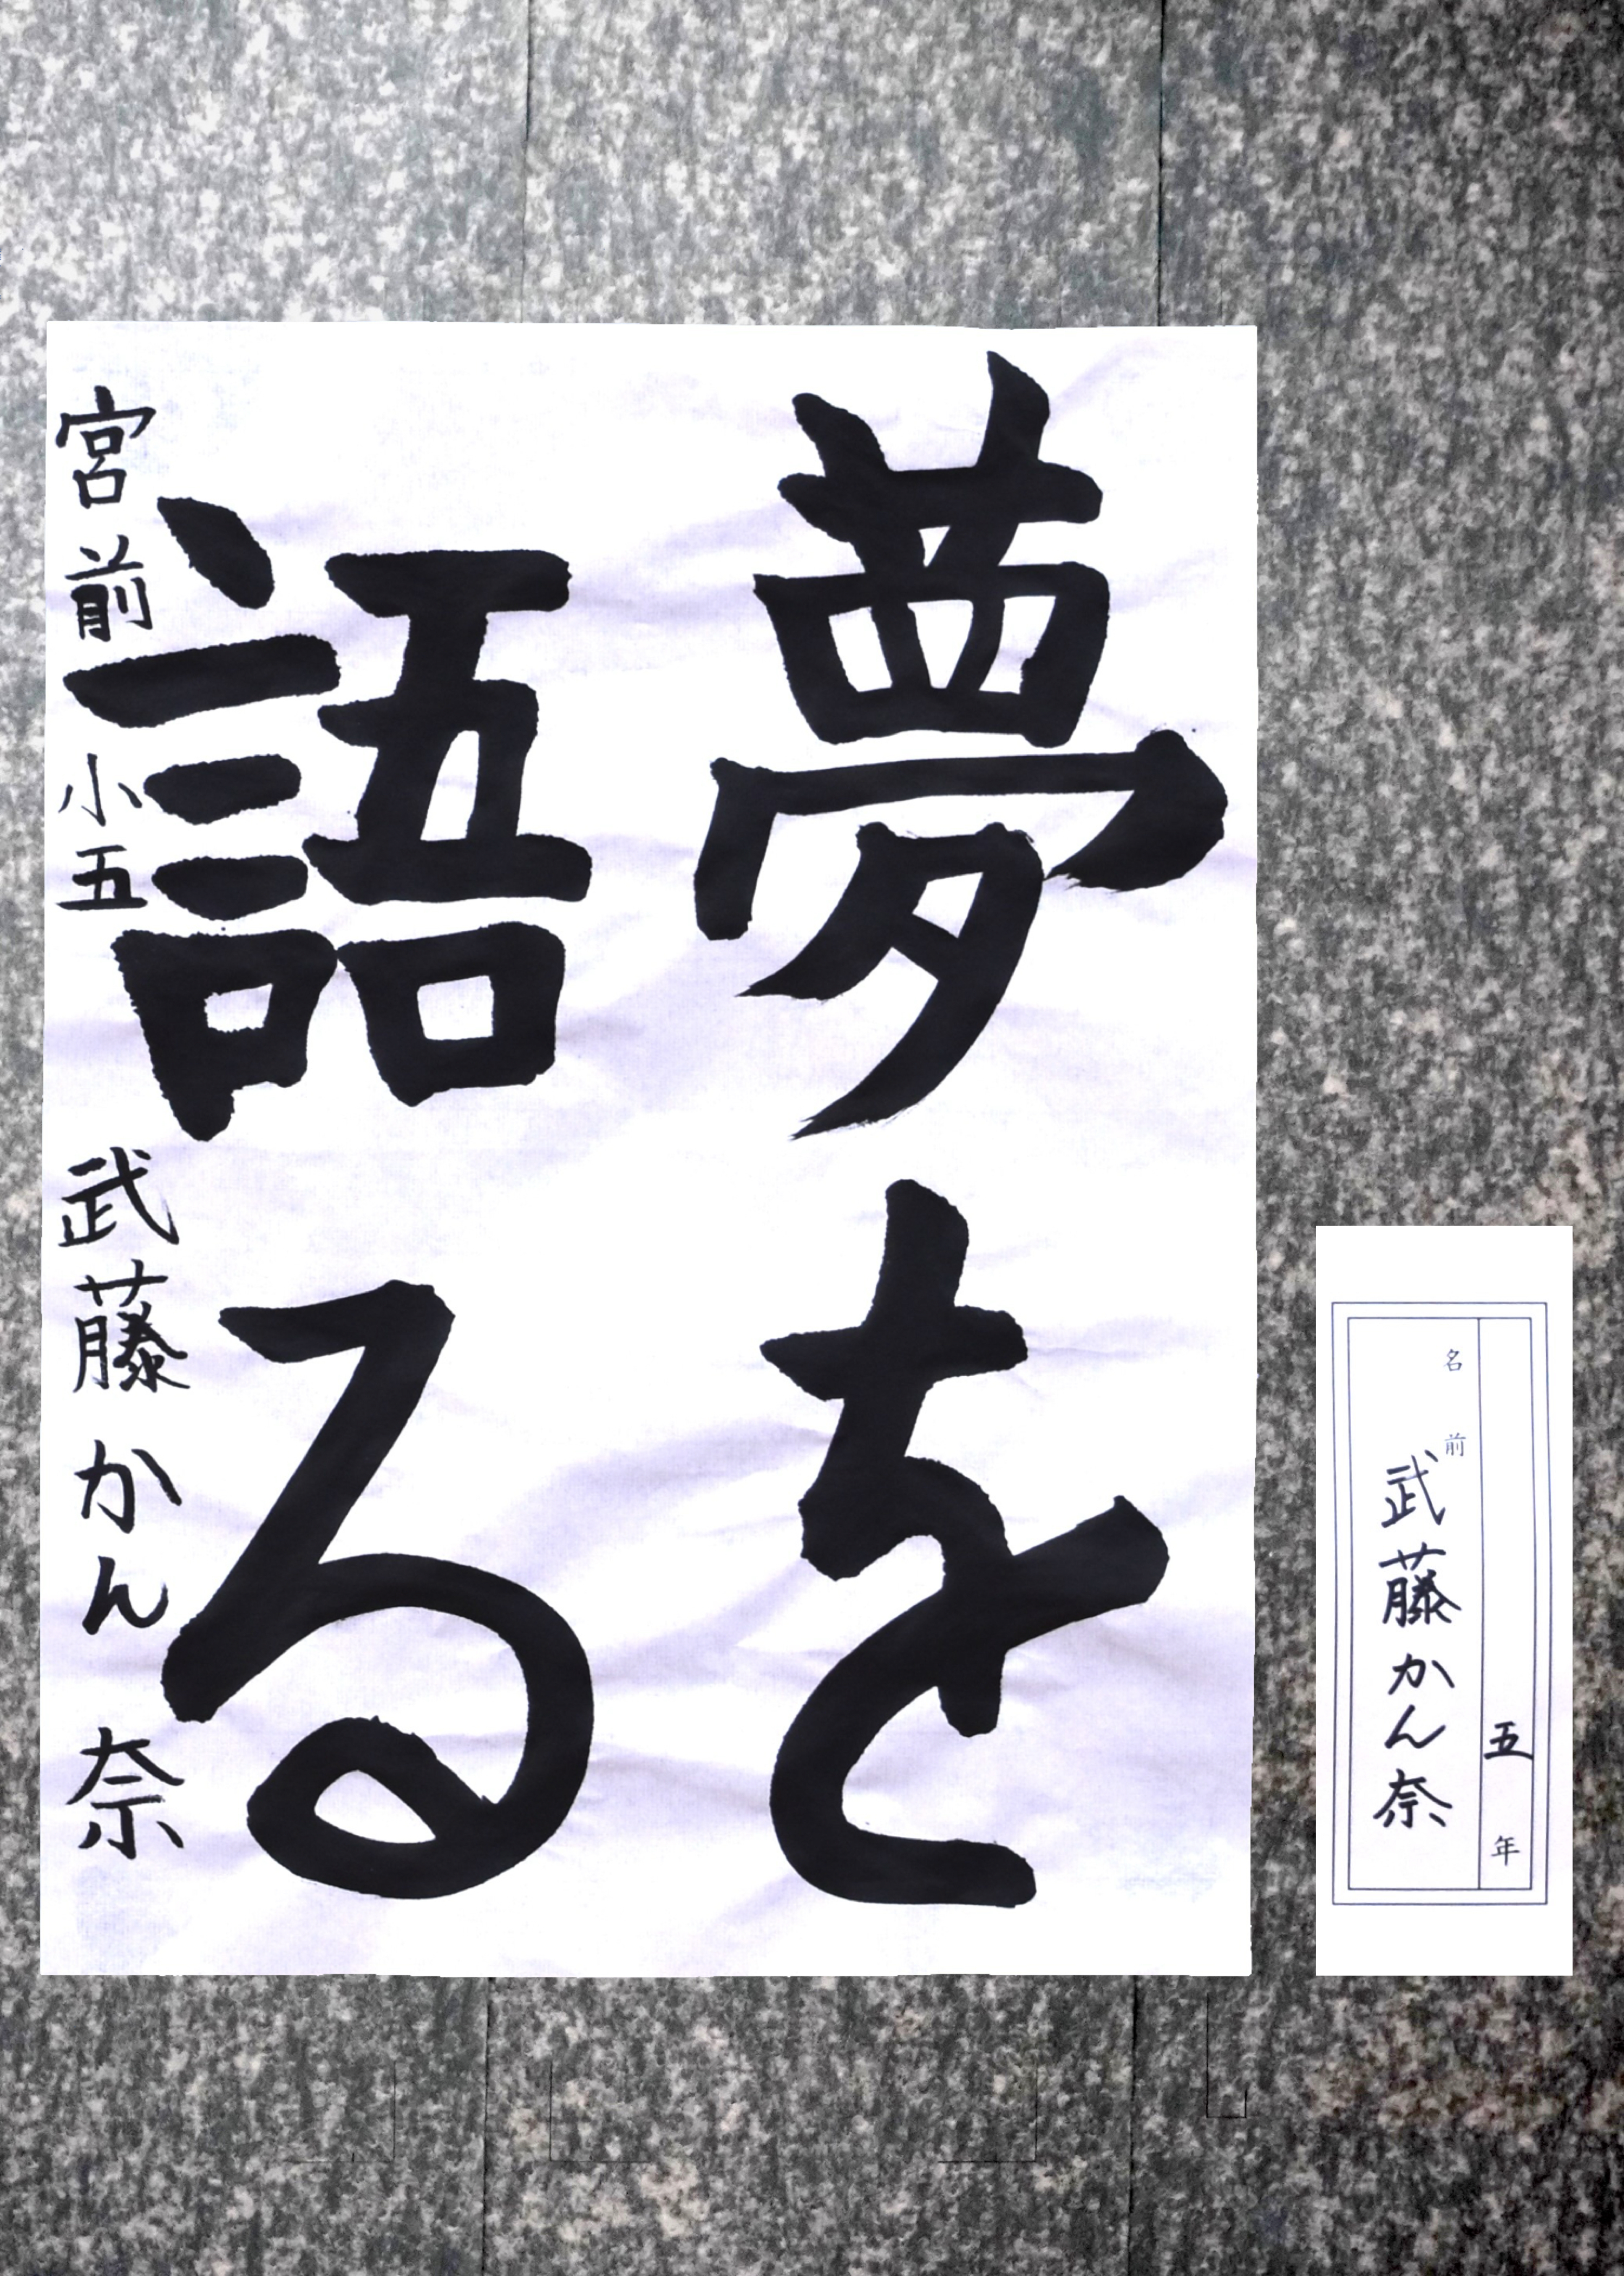 夢を
語る
宮前小五 武藤かん奈
五年
名前
武藤かん奈